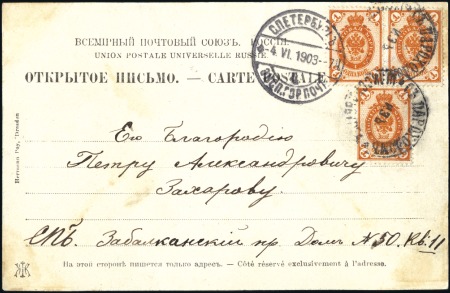 ВСЕМІРНЫЙ ПОЧТОВЫЙ СОЮЗЪ. РОССІЯ.
UNION POSTALE UNIVERSELLE RUSSIE.
ОТКРЫТОЕ ПИСЬМО. — CARTE POSTALE
С.ПЕТЕРБУРГ
4. VI. 1903
ГОР. ПОЧТ.
Его Благородію
Петру Александровичу
Захарову.
СПБ. Забалканскій пр. Домъ № 50. Кв. 11
На этой сторонѣ пишется только адресъ. — Côté réservé exclusivement à l'adresse.
Hermann Poy, Dresden